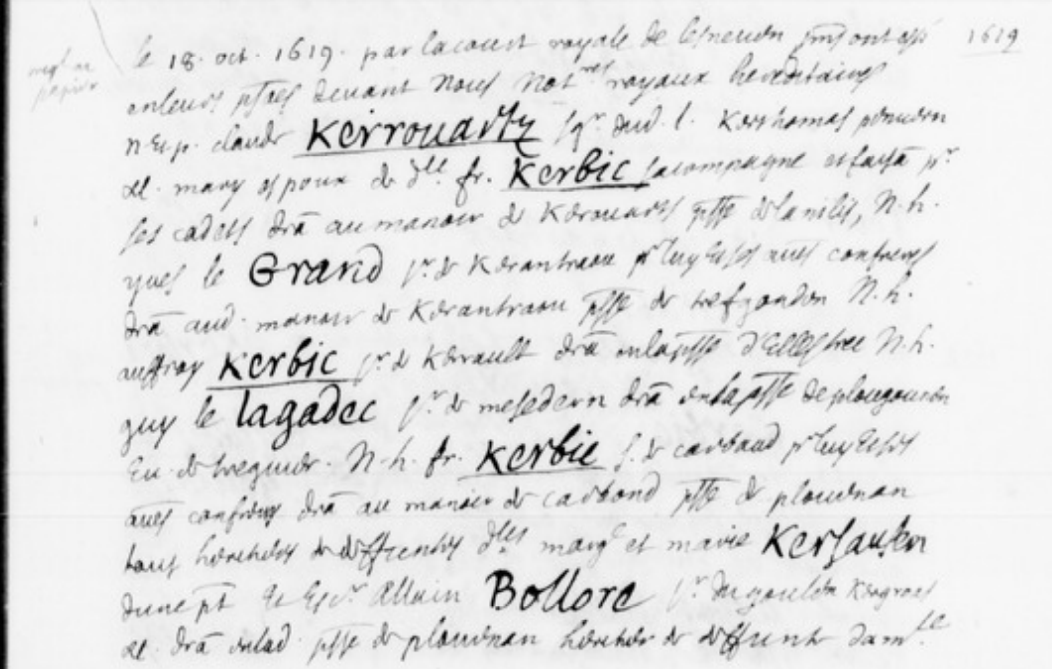 1619
le 18. oct. 1619. par la court royale de lesneven
en leurs devant Nous Not^res royaux hereditaires
n. et p. claude Kerrouartz s^gr dud. l. Kerthomas
al. mary espoux de d^lle fr. Kerbic sa compagne et p^r
ses cadets drã au manoir de Kerouarts psse de lanilis, N. h.
yues le Grand s^r de Kerantraon p^r luy et ses aues confrers
drã aud. manoir de Kerantraon psse de trefgondern N. h.
auffray Kerbic s^r de Kerrault drã en la psse N. h.
guy le lagadec s^r de mesedern drã en la psse de plougounen
Eu. de treguier. N. h. fr. Kerbic s. de carbond p^r luy et ses
aues confrers drã au manoir de carbond psse de plouenan
tous heritiers de deffuentes d^lles marg^e et marie Kersauson
dune pt Et Esc^r Allain Bollore s^r du Kergroas
al. drã en lad. psse de plouenan heritier de deffunte dam^lle